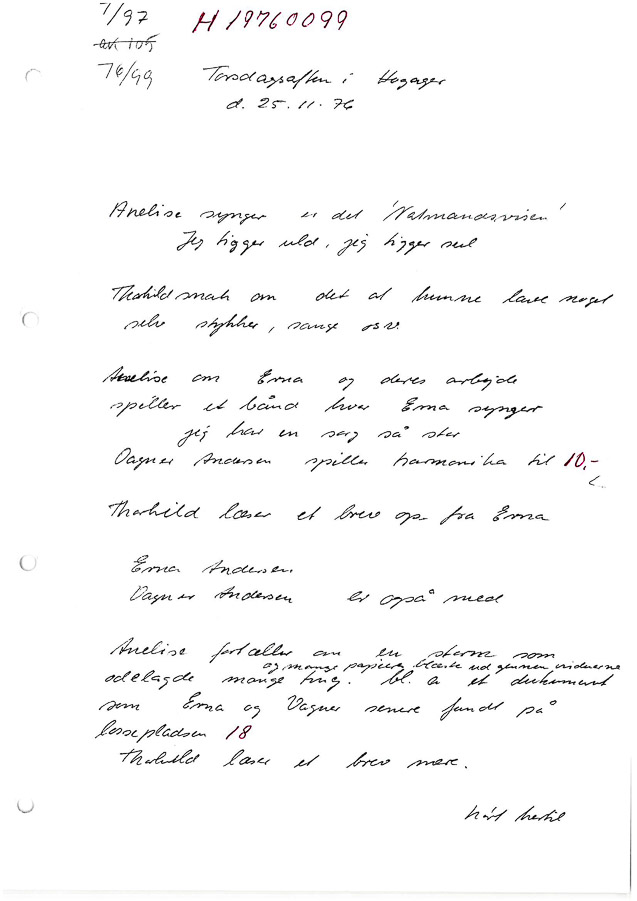 7/97
H 19760099
76/99
Torsdagsaften i Hogager
d. 25.11.76
Anelise synger er det 'Natmandsvisen'
Jeg tigger uld, jeg tigger sul
Thorhild snak om det at kunne lave noget
selv stykker, sange osv.
Anelise om Erna og deres arbejde
spiller et bånd hvor Erna synger
jeg har en sorg så stor
Vagner Andersen spiller harmonika til 10,-
Thorhild læser et brev op fra Erna
Erna Andersen
Vagner Andersen er også med
Anelise fortæller om en storm som
og mange papirer blæste ud gennem vinduerne
ødelagde mange ting. bl. a et dokument
som Erna og Vagner senere fandt på
lossepladsen 18
Thorhild læser et brev mere.